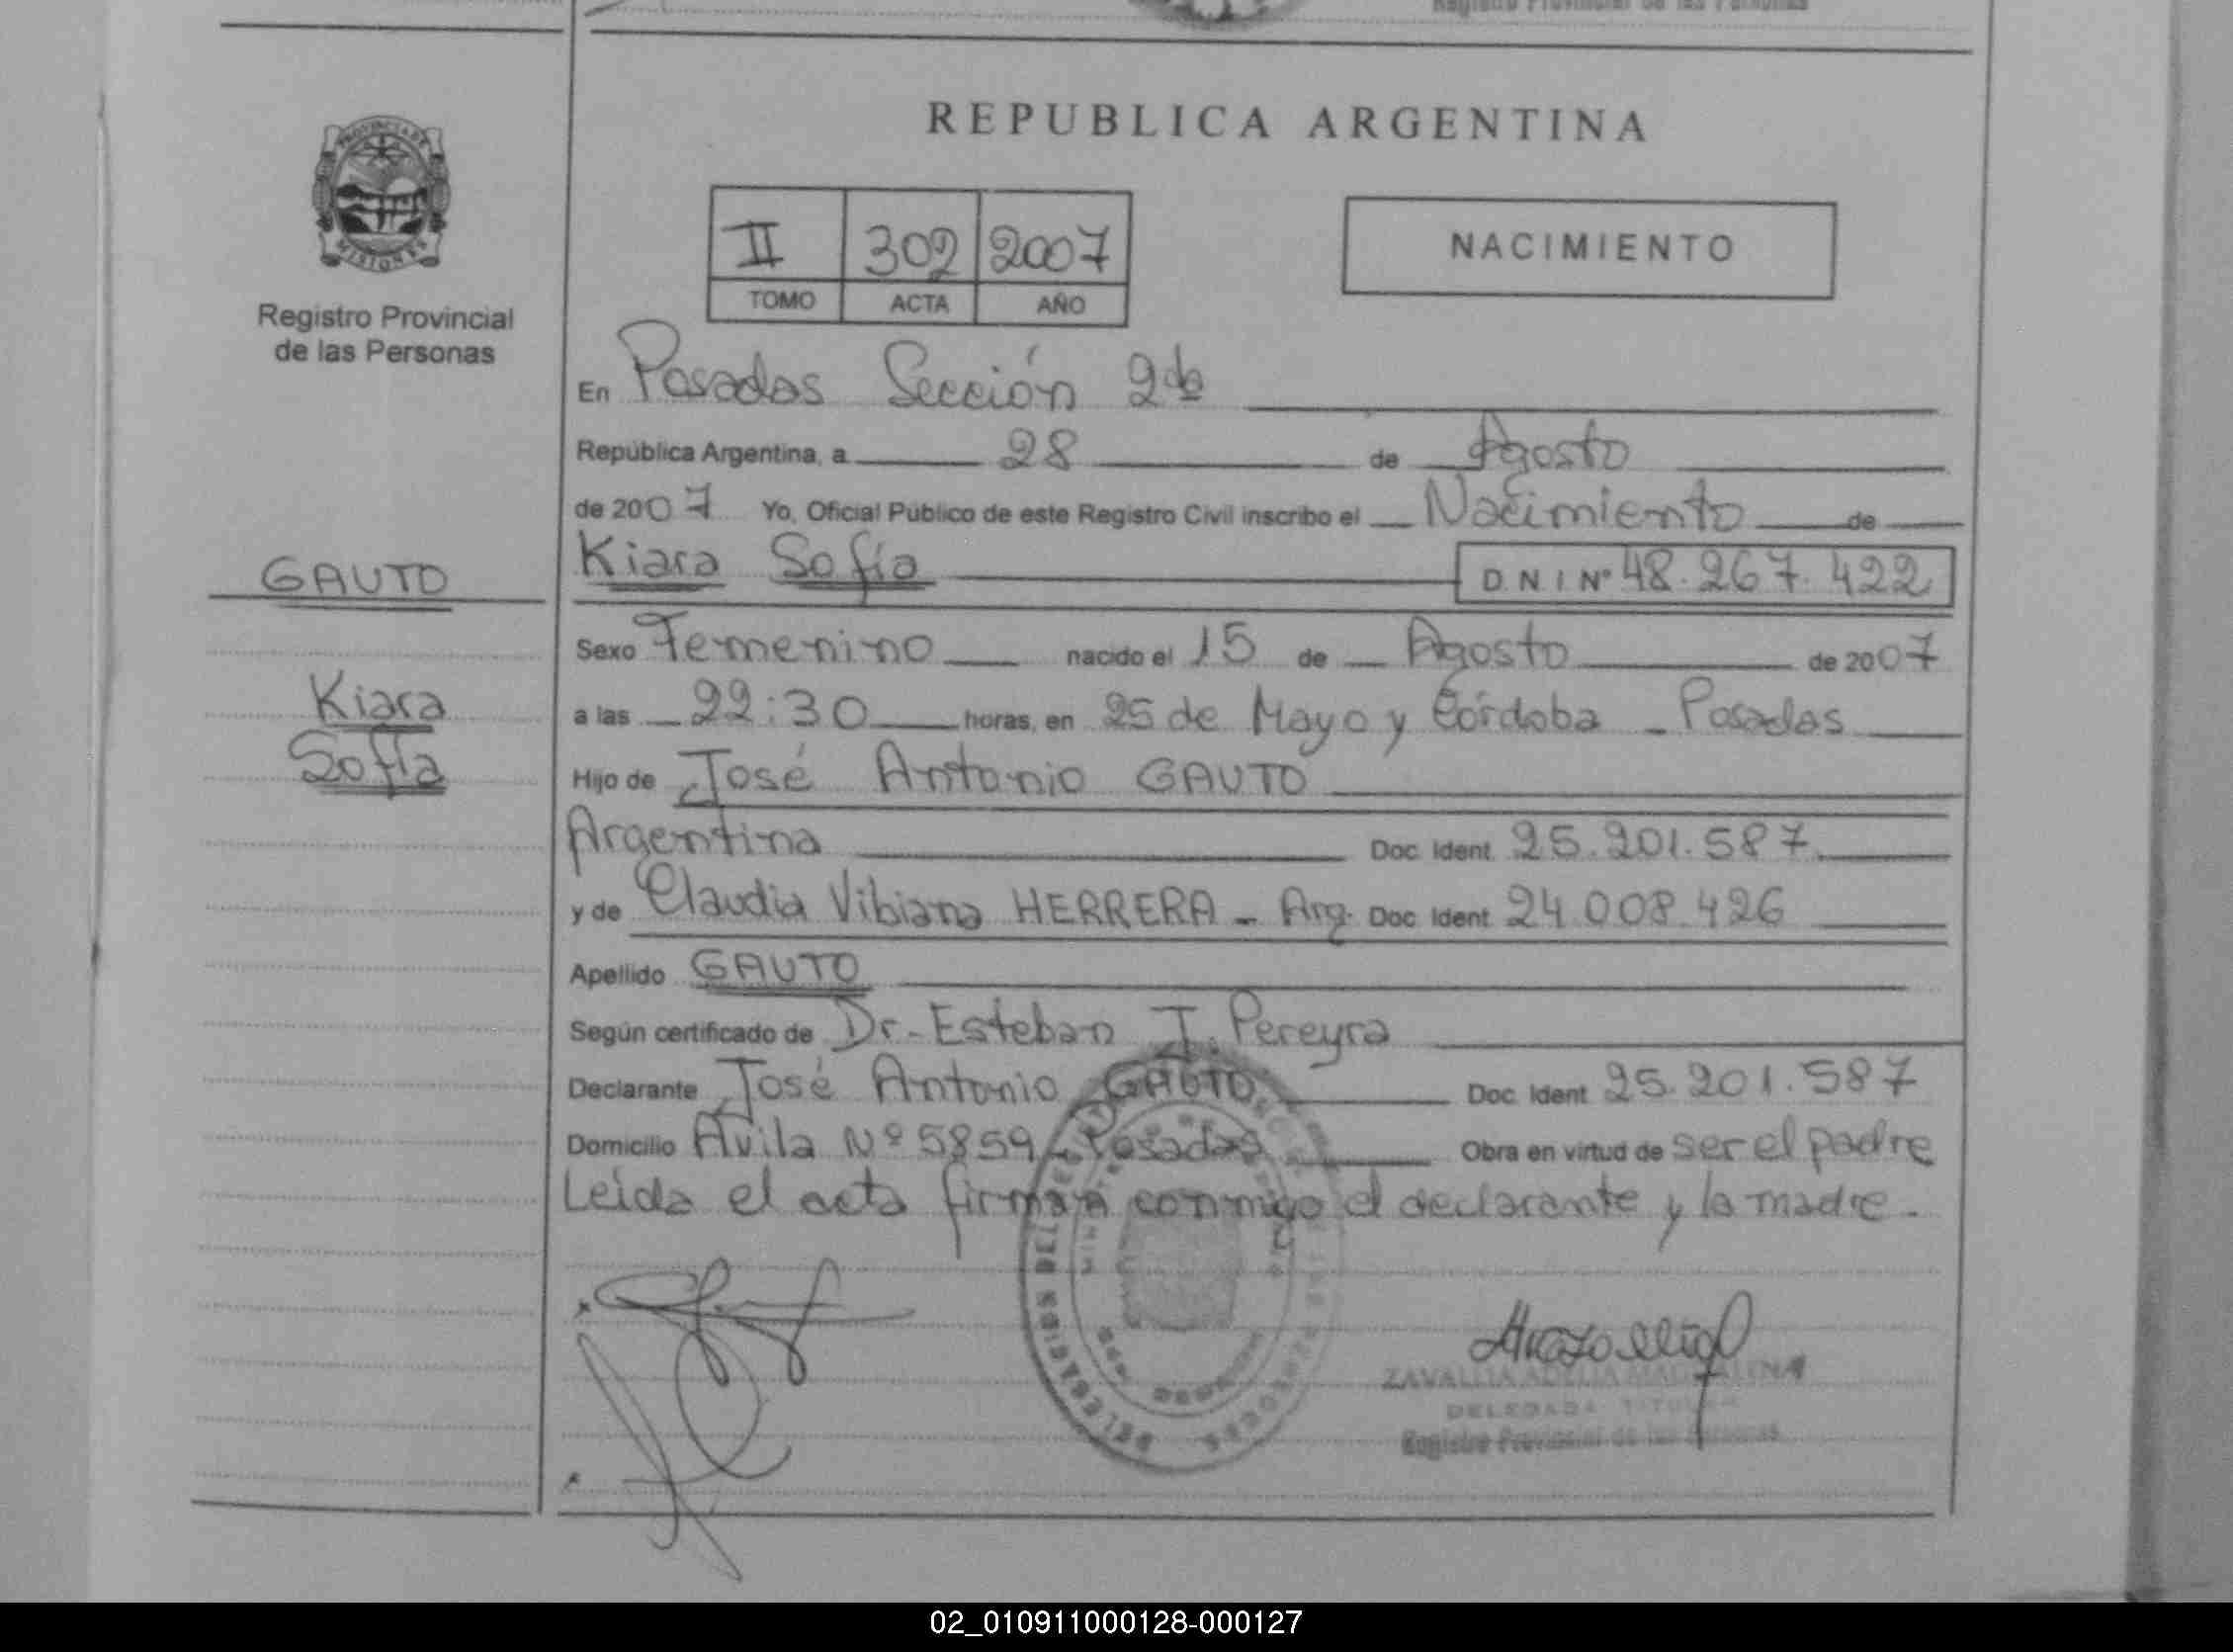 Registro Provincial de las Personas
REPUBLICA ARGENTINA
PROVINCIA DE
MISIONES
II 302 2007
TOMO ACTA AÑO
NACIMIENTO
Registro Provincial
de las Personas
En Posadas Sección 2da
República Argentina, a 28 de Agosto
de 2007 Yo, Oficial Público de este Registro Civil inscribo el Nacimiento de
GAUTO
Kiara Sofía D.N.I Nº 48.267.422
Sexo Femenino nacido el 15 de Agosto de 2007
Kiara
a las 22:30 horas, en 25 de Mayo y Córdoba - Posadas
Sofía
Hijo de José Antonio GAUTO
Argentina Doc. Ident. 25.201.587
y de Claudia Vibiana HERRERA - Arg. Doc. Ident. 24.008.426
Apellido GAUTO
Según certificado de Dr. Esteban J. Pereyra
Declarante José Antonio GAUTO Doc. Ident. 25.201.587
Domicilio Avila Nº 5859 - Posadas Obra en virtud de ser el padre
Leída el acta firman conmigo el declarante y la madre.
ZAVALLA ADELIA MAGDALENA
DELEGADA TITULAR
Registro Provincial de las Personas
02_010911000128-000127